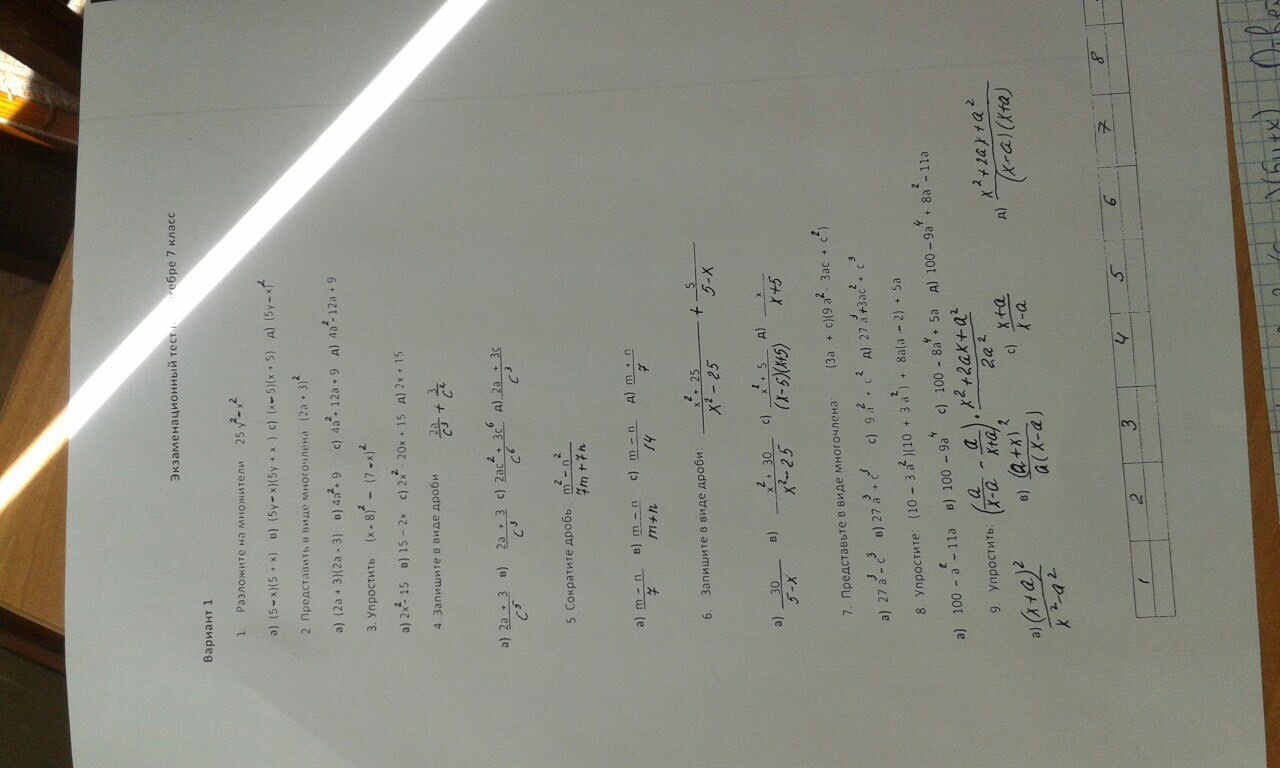 Экзаменационный тест гебре 7 класс
Вариант 1
1. Разложите на множители 25 y² – x²
а) (5 – x)(5 + x) в) (5y – x)(5y + x ) с) (x – 5)(x + 5) д) (5y – x)²
2 Представить в виде многочлена (2a + 3)²
а) (2a + 3)(2a - 3) в) 4a² + 9 с) 4a² + 12a + 9 д) 4a² - 12a + 9
3. Упростить (x - 8)² – (7 – x)²
а) 2x² - 15 в) 15 – 2x с) 2x² 20x + 15 д) 2x + 15
4 Запишите в виде дроби 2a/c³ + 3/c²
а) 2a + 3/c⁵ в) 2a + 3/c³ с) 2ac² + 3c⁶/c⁶ д) 2a + 3c/c³
5 Сократите дробь m² – n²/7m + 7n
а) m – n/7 в) m – n/m+n с) m – n/14 д) m + n/7
6. Запишите в виде дроби x² + 25/x² – 25 + 5/5-x
а) 30/5-x в) x² + 30/x² – 25 с) x² + 5/(x-5)(x+5) д) x/x+5
7. Представьте в виде многочлена (3a + c)(9a² - 3ac + c²)
а) 27a³ – c³ в) 27a³ + c³ с) 9a² + c² д) 27a³ + 3ac² + c³
8 Упростите (10 – 3a²)(10 + 3a²) + 8a(a – 2) + 5a
а) 100 – a² – 11a в) 100 – 9a⁴ с) 100 – 8a⁴ + 5a д) 100 – 9a⁴ + 8a² – 11a
9. Упростить: (a/x-a - a/x+a) · x² + 2ax + a²/2a²
а) (x+a)²/x²-a² в) (a+x)²/a(x-a) с) x+a/x-a д) x² + 2ax + a²/(x-a)(x+a)
1 2 3 4 5 6 7 8